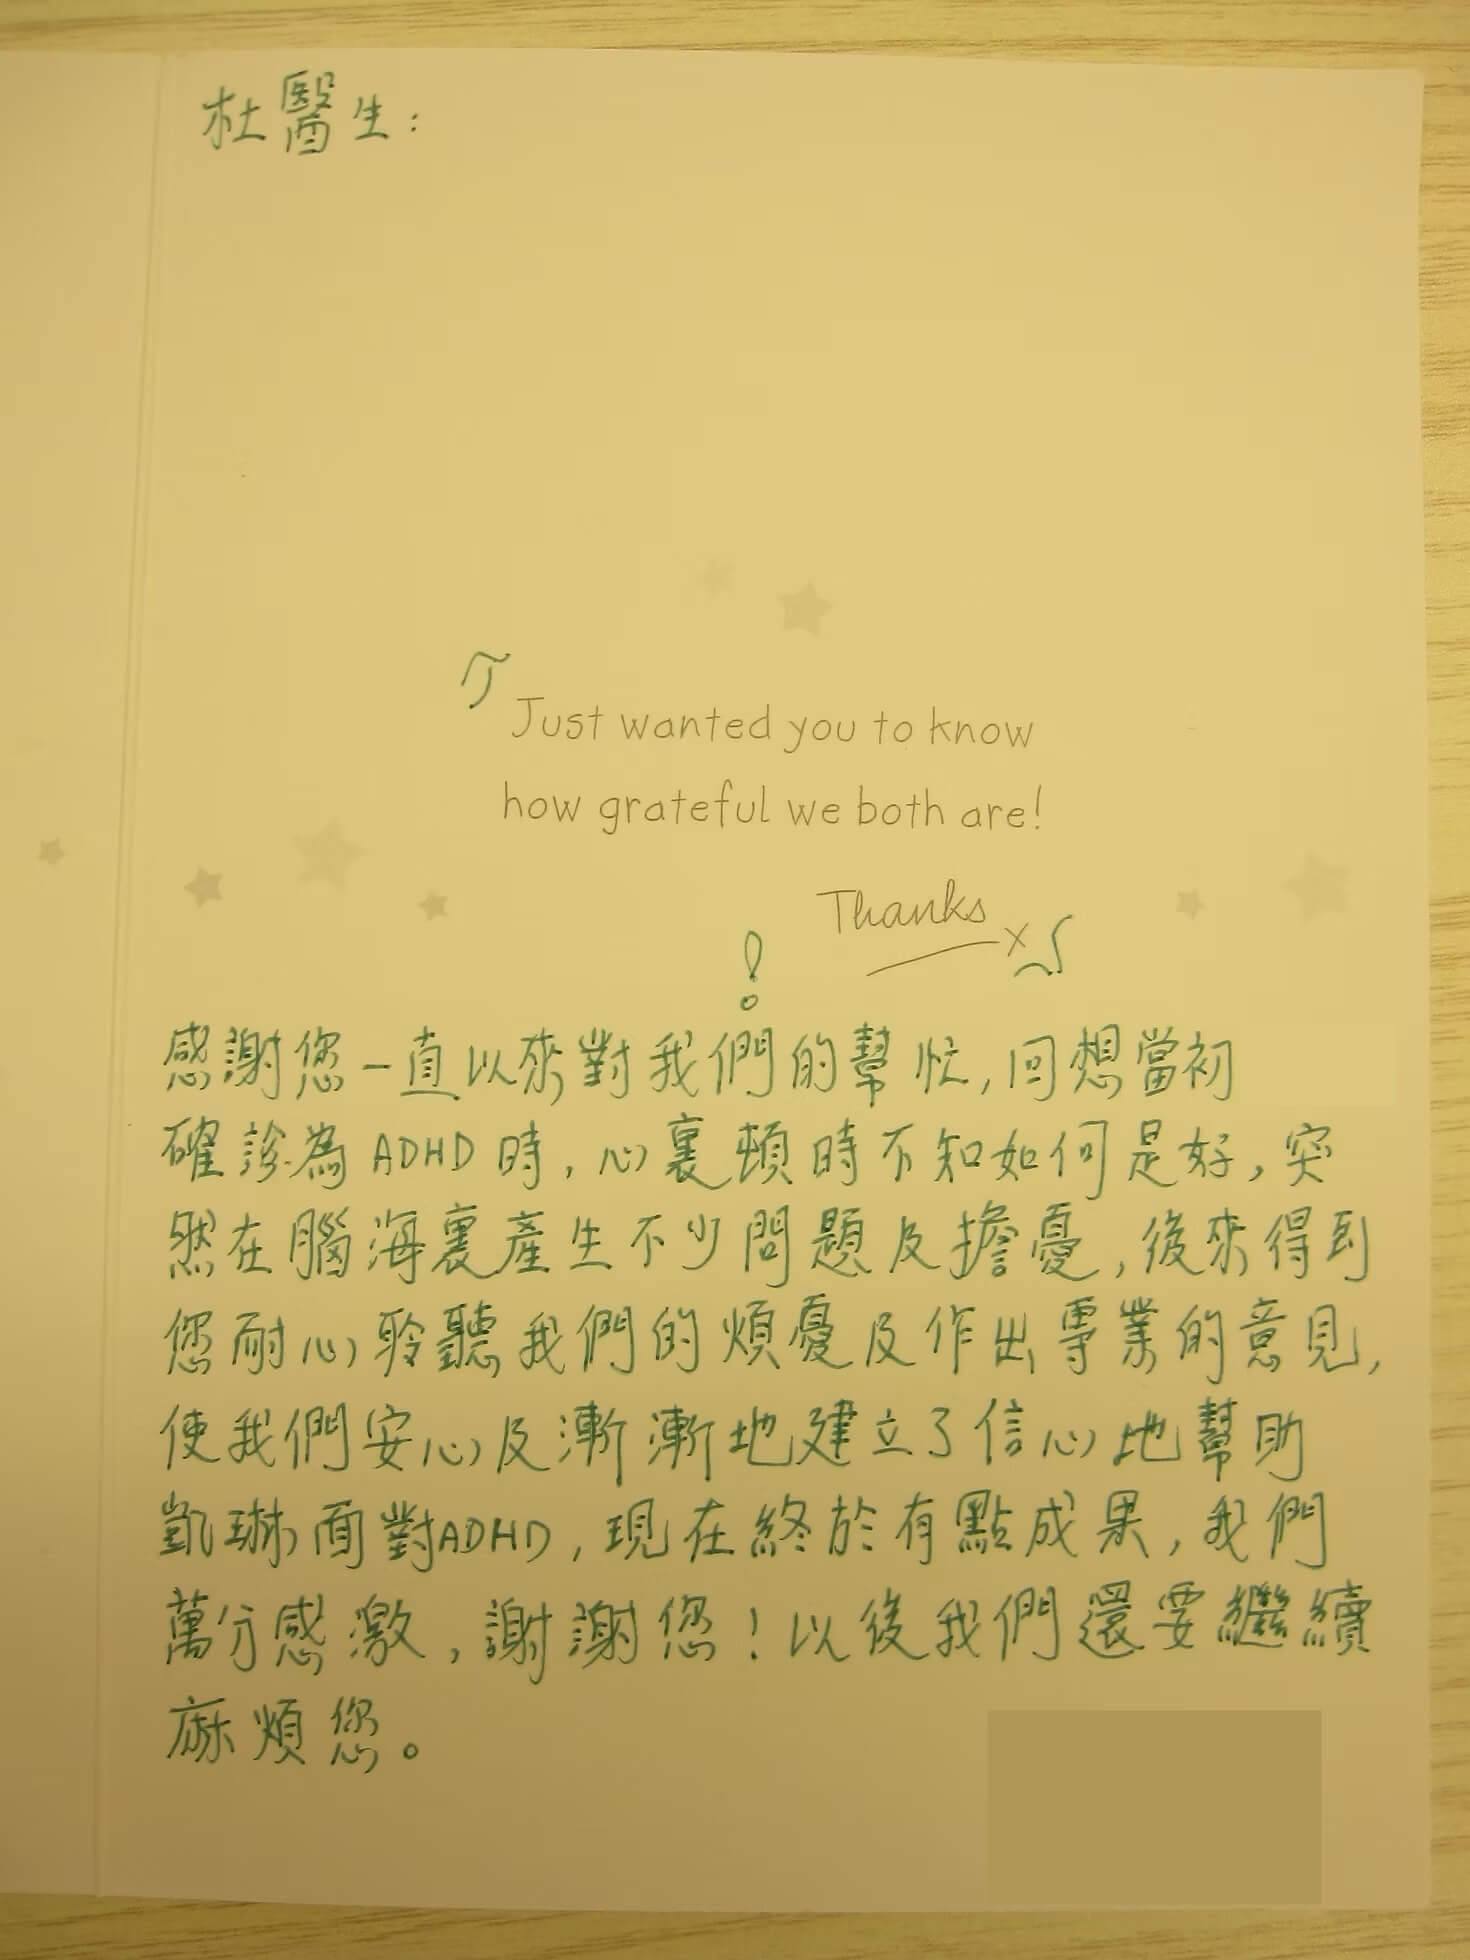 杜醫生：
Just wanted you to know
how grateful we both are!
Thanks x
!
感謝您一直以來對我們的幫忙，回想當初
確診為ADHD時，心裏頓時不知如何是好，突
然在腦海裏產生不少問題及擔憂，後來得到
您耐心聆聽我們的煩憂及作出專業的意見，
使我們安心及漸漸地建立了信心地幫助
凱琳面對ADHD，現在終於有點成果，我們
萬分感激，謝謝您！以後我們還要繼續
麻煩您。